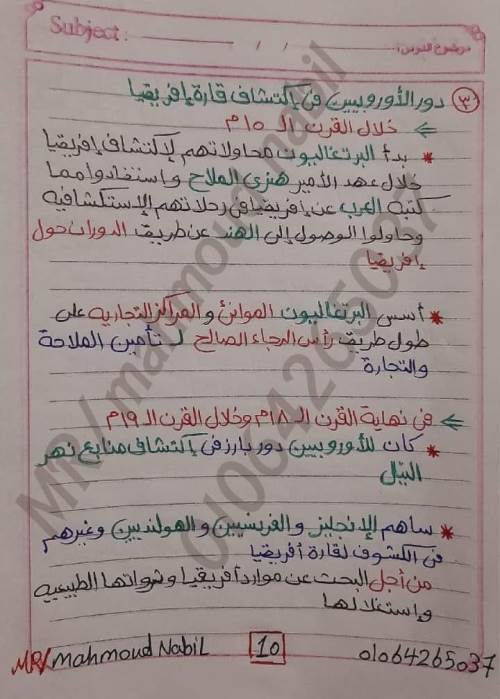 Subject:
موضوع الدرس:
/ /
٣ دور الأوروبيين في إكتشاف قارة إفريقيا
خلال القرن الـ ١٥م
* بدأ البرتغاليون محاولاتهم لإكتشاف إفريقيا
خلال عهد الأمير هنري الملاح وإستفادوا مما
كتبه العرب عن إفريقيا في رحلاتهم الإستكشافيه
وحاولوا الوصول إلى الهند عن طريق الدوران حول
إفريقيا
* أسس البرتغاليون الموانئ والمراكز التجاريه على
طول طريق رأس الرجاء الصالح لـ تأمين الملاحة
والتجارة
في نهاية القرن الـ ١٨م وخلال القرن الـ ١٩م
* كان للأوروبيين دور بارز في إكتشاف منابع نهر
النيل
* ساهم الإنجليز والفرنسيين والهولنديين وغيرهم
في الكشوف لقارة أفريقيا
من أجل البحث عن موارد أفريقيا وثرواتها الطبيعيه
وإستغلالها
MR/Mahmoud Nabil 10 01064265037
MR/mahmoud nabil
01064265037